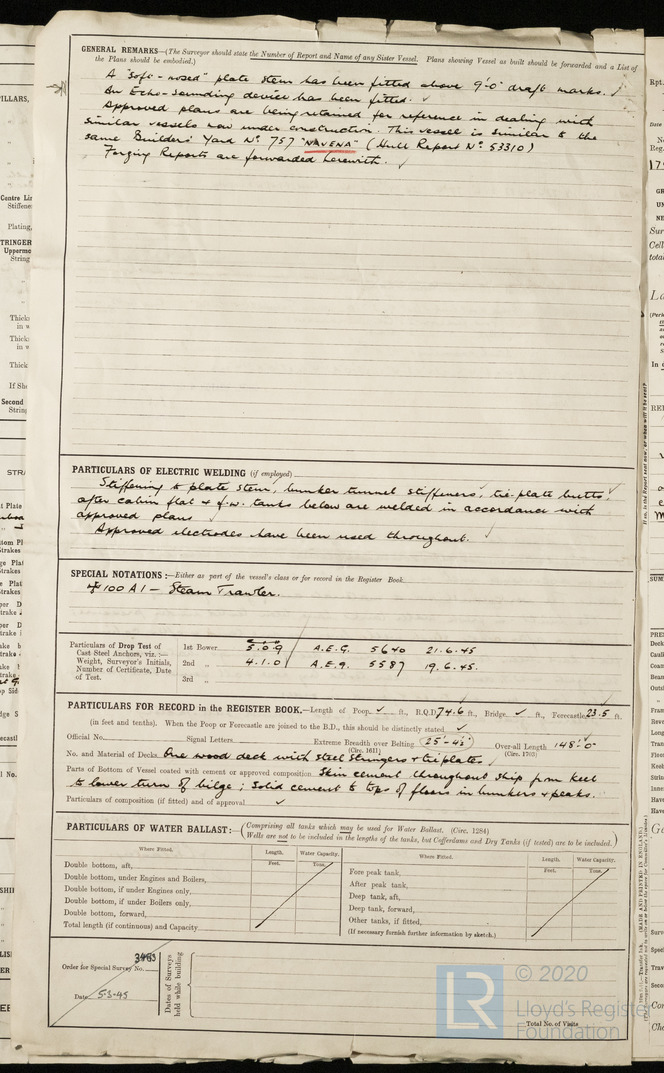 GENERAL REMARKS—(The Surveyor should state the Number of Report and Name of any Sister Vessel. Plans showing Vessel as built should be forwarded and a List of
the Plans should be embodied.)
A "soft-nosed" plate stem has been fitted above 9'-0" draft marks. ✓
An Echo-sounding device has been fitted. ✓
Approved plans are being retained for reference in dealing with
similar vessels now under construction. This vessel is similar to the
same Builders' Yard No. 757 "NAVENA" (Hull Report No. 53310)
Forging Reports are forwarded herewith. ✓
PARTICULARS OF ELECTRIC WELDING (if employed)
Stiffening to plate stem, bunker tunnel stiffeners, tie-plate butts
after cabin flat & f.w. tanks below are welded in accordance with
approved plans
Approved electrodes have been used throughout.
SPECIAL NOTATIONS :—Either as part of the vessel's class or for record in the Register Book
✠ 100 A1 — Steam Trawler.
Particulars of Drop Test of
Cast Steel Anchors, viz. :—
Weight, Surveyor's Initials,
Number of Certificate, Date
of Test.
1st Bower 5.0.9 A.E.G. 5640 21.6.45
2nd „ 4.1.0 A.E.G. 5587 19.6.45.
3rd „
PARTICULARS FOR RECORD in the REGISTER BOOK.—Length of Poop ✓ ft., R.Q.D. 74.6 ft., Bridge ✓ ft., Forecastle 23.5 ft.
(in feet and tenths). When the Poop or Forecastle are joined to the B.D., this should be distinctly stated ✓
Official No. Signal Letters Extreme Breadth over Belting Over-all Length 148'-0"
(Circ. 1611) (Circ. 1703)
No. and Material of Decks One wood deck with steel stringers & tieplates
Parts of Bottom of Vessel coated with cement or approved composition Skin cement throughout ship from keel
to lower turn of bilge; solid cement to tops of floors in bunkers & peaks.
Particulars of composition (if fitted) and of approval ✓
PARTICULARS OF WATER BALLAST:— (Comprising all tanks which may be used for Water Ballast. (Circ. 1284)
Wells are not to be included in the lengths of the tanks, but Cofferdams and Dry Tanks (if tested) are to be included.)
Where Fitted. Length. Water Capacity. Where Fitted. Length. Water Capacity.
Feet. Tons. Feet. Tons.
Double bottom, aft, Fore peak tank,
Double bottom, under Engines and Boilers, After peak tank,
Double bottom, if under Engines only, Deep tank, aft,
Double bottom, if under Boilers only, Deep tank, forward,
Double bottom, forward, Other tanks, if fitted,
Total length (if continuous) and Capacity (If necessary furnish further information by sketch.)
Order for Special Survey No. 3463
Date 5-3-45
Dates of Surveys
held while building
Total No. of Visits
LR
© 2020
Lloyd's Register
Foundation